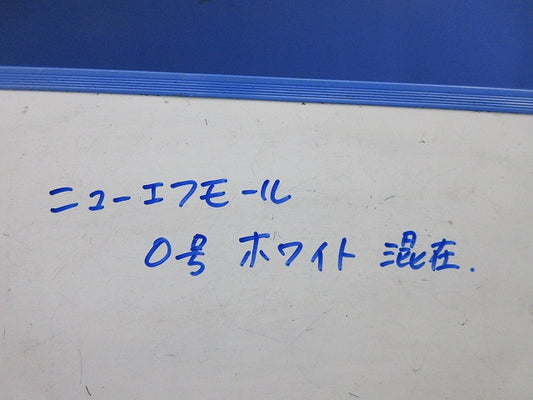 ニューエフモール
0号 ホワイト 混在.